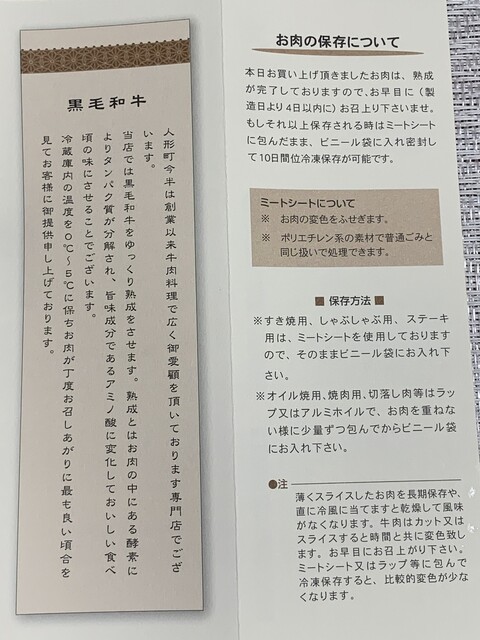 黒毛和牛
人形町今半は創業以来牛肉料理で広く御愛顧を頂いております専門店でござ
います。
当店では黒毛和牛をゆっくり熟成をさせます。熟成とはお肉の中にある酵素に
よりタンパク質が分解され、旨味成分であるアミノ酸に変化しておいしい食べ
頃の味にさせることでございます。
冷蔵庫内の温度を0℃〜5℃に保ちお肉が丁度お召しあがりに最も良い頃合を
見てお客様に御提供申し上げております。
お肉の保存について
本日お買い上げ頂きましたお肉は、熟成
が完了しておりますので、お早目に（製
造日より4日以内に）お召上り下さいませ。
もしそれ以上保存される時はミートシート
に包んだまま、ビニール袋に入れ密封し
て10日間位冷凍保存が可能です。
ミートシートについて
※ お肉の変色をふせぎます。
※ ポリエチレン系の素材で普通ごみと
同じ扱いで処理できます。
■ 保存方法 ■
※すき焼用、しゃぶしゃぶ用、ステーキ
用は、ミートシートを使用しております
ので、そのままビニール袋にお入れ下
さい。
※オイル焼用、焼肉用、切落し肉等はラッ
プ又はアルミホイルで、お肉を重ねな
い様に少量ずつ包んでからビニール袋
にお入れ下さい。
●注
薄くスライスしたお肉を長期保存や、
直に冷風に当てますと乾燥して風味
がなくなります。牛肉はカット又は
スライスすると時間と共に変色致し
ます。お早目にお召上がり下さい。
ミートシート又はラップ等に包んで
冷凍保存すると、比較的変色が少な
くなります。